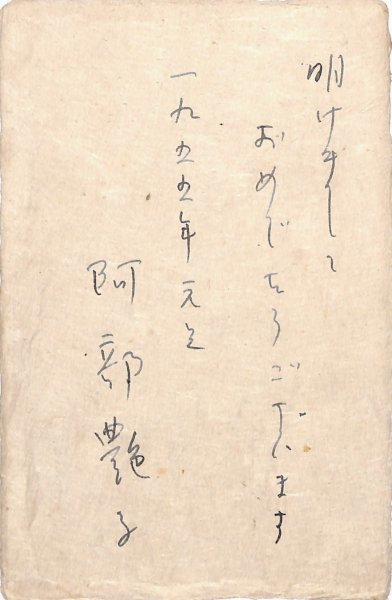 明けまして
おめでとうございます
一九五五年元旦
阿部艶子